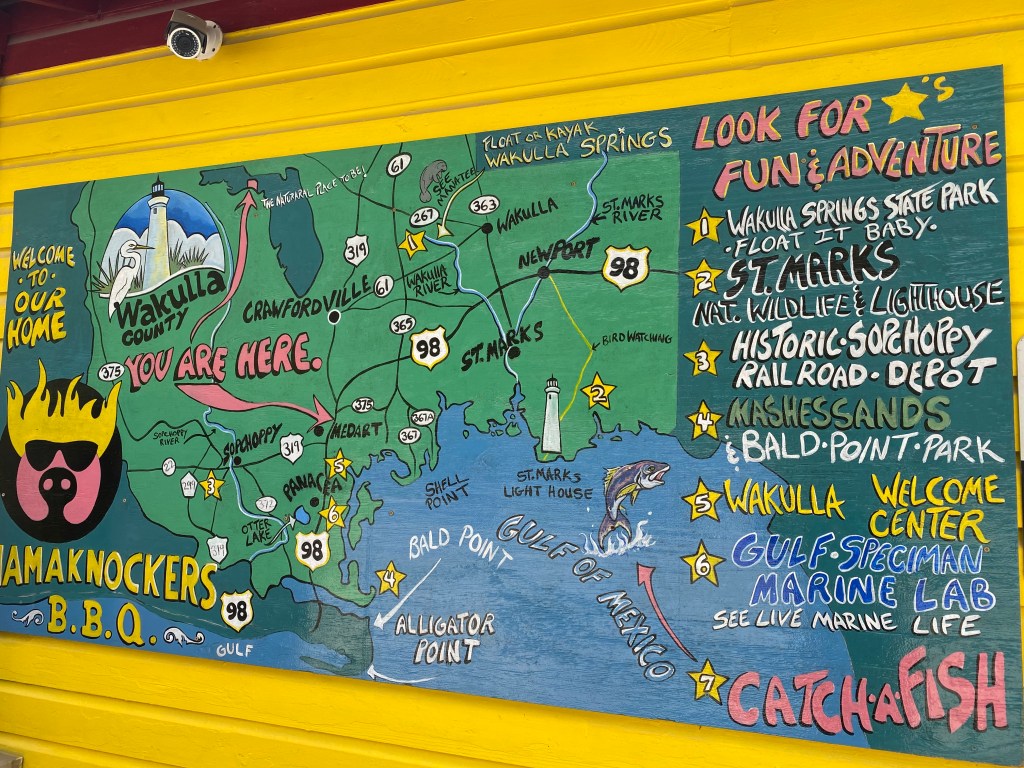 FLOAT OR KAYAK
WAKULLA SPRINGS
LOOK FOR 'S
FUN & ADVENTURE
1 WAKULLA SPRINGS STATE PARK
·FLOAT IT BABY·
2 ST. MARKS
NAT. WILDLIFE & LIGHTHOUSE
3 HISTORIC·SOPCHOPPY
RAILROAD·DEPOT
4 MASHESSANDS
& BALD·POINT·PARK
5 WAKULLA WELCOME
CENTER
6 GULF·SPECIMAN
MARINE LAB
SEE LIVE MARINE LIFE
7 CATCH·A·FISH
WELCOME
·TO·
OUR
HOME
Wakulla
COUNTY
THE NATURARAL PLACE TO BE!
61
SEE
MANATEE
319
267
363
1
WAKULLA
ST. MARKS
RIVER
NEWPORT
98
WAKULLA
RIVER
61
CRAWFORDVILLE
365
98
ST. MARKS
BIRD WATCHING
YOU ARE HERE.
375
2
375
367A
367
MEDART
SOPCHOPPY
RIVER
SOPCHOPPY
319
22
299
3
5
PANACEA
6
372
OTTER
LAKE
319
98
SHELL
POINT
ST. MARKS
LIGHT HOUSE
GULF OF MEXICO
BALD POINT
4
ALLIGATOR
POINT
HAMAKNOCKERS
B.B.Q.
98
GULF